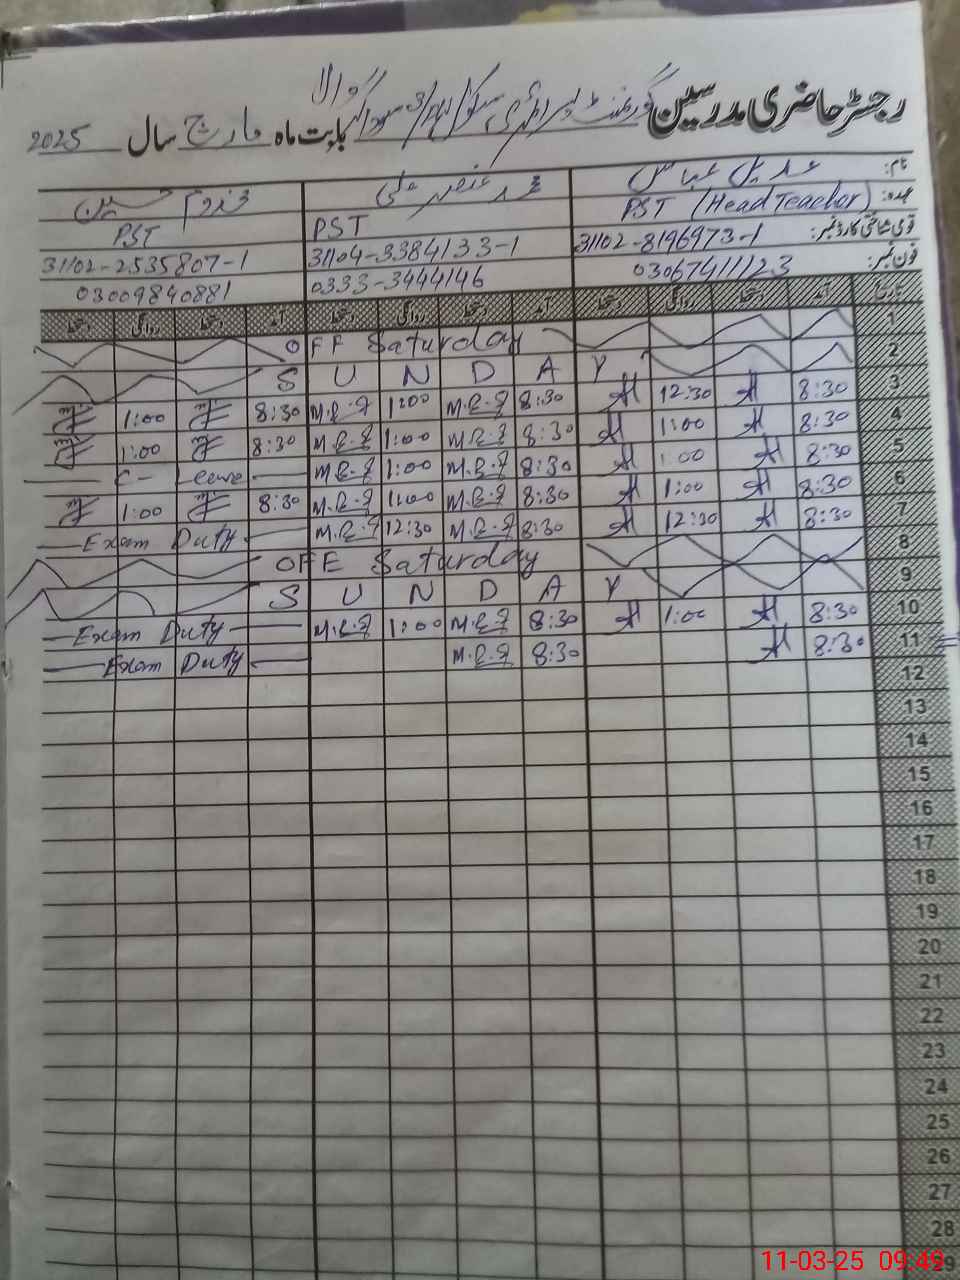 رجسٹر حاضری مدرسین گورنمنٹ پرائمری سکول سوداگر والا بابت ماہ مارچ سال 2025
نام: عدیل عباس محمد غضنفر علی مخدوم حسین
عہدہ: PST (Head Teacher) PST PST
قومی شناختی کارڈ نمبر: 31102-8196973-1 31104-3384133-1 31102-2535807-1
فون نمبر: 03067411123 0333-3444146 03009840881
تاریخ آمد دستخط روانگی دستخط آمد دستخط روانگی دستخط آمد دستخط روانگی دستخط
1 OFF Saturday
2 S U N D A Y
3 8:30 12:30 8:30 M.R.F 1:00 M.R.F 8:30 1:00
4 8:30 1:00 8:30 M.R.F 1:00 M.R.F 8:30 1:00
5 8:30 1:00 8:30 M.R.F 1:00 M.R.F C- Leave
6 8:30 1:00 8:30 M.R.F 1:00 M.R.F 8:30 1:00
7 8:30 12:30 8:30 M.R.F 12:30 M.R.F Exam Duty
8 OFF Saturday
9 S U N D A Y
10 8:30 1:00 8:30 M.R.F 1:00 M.R.F Exam Duty
11 8:30 8:30 M.R.F Exam Duty
12
13
14
15
16
17
18
19
20
21
22
23
24
25
26
27
28
29
11-03-25 09:49